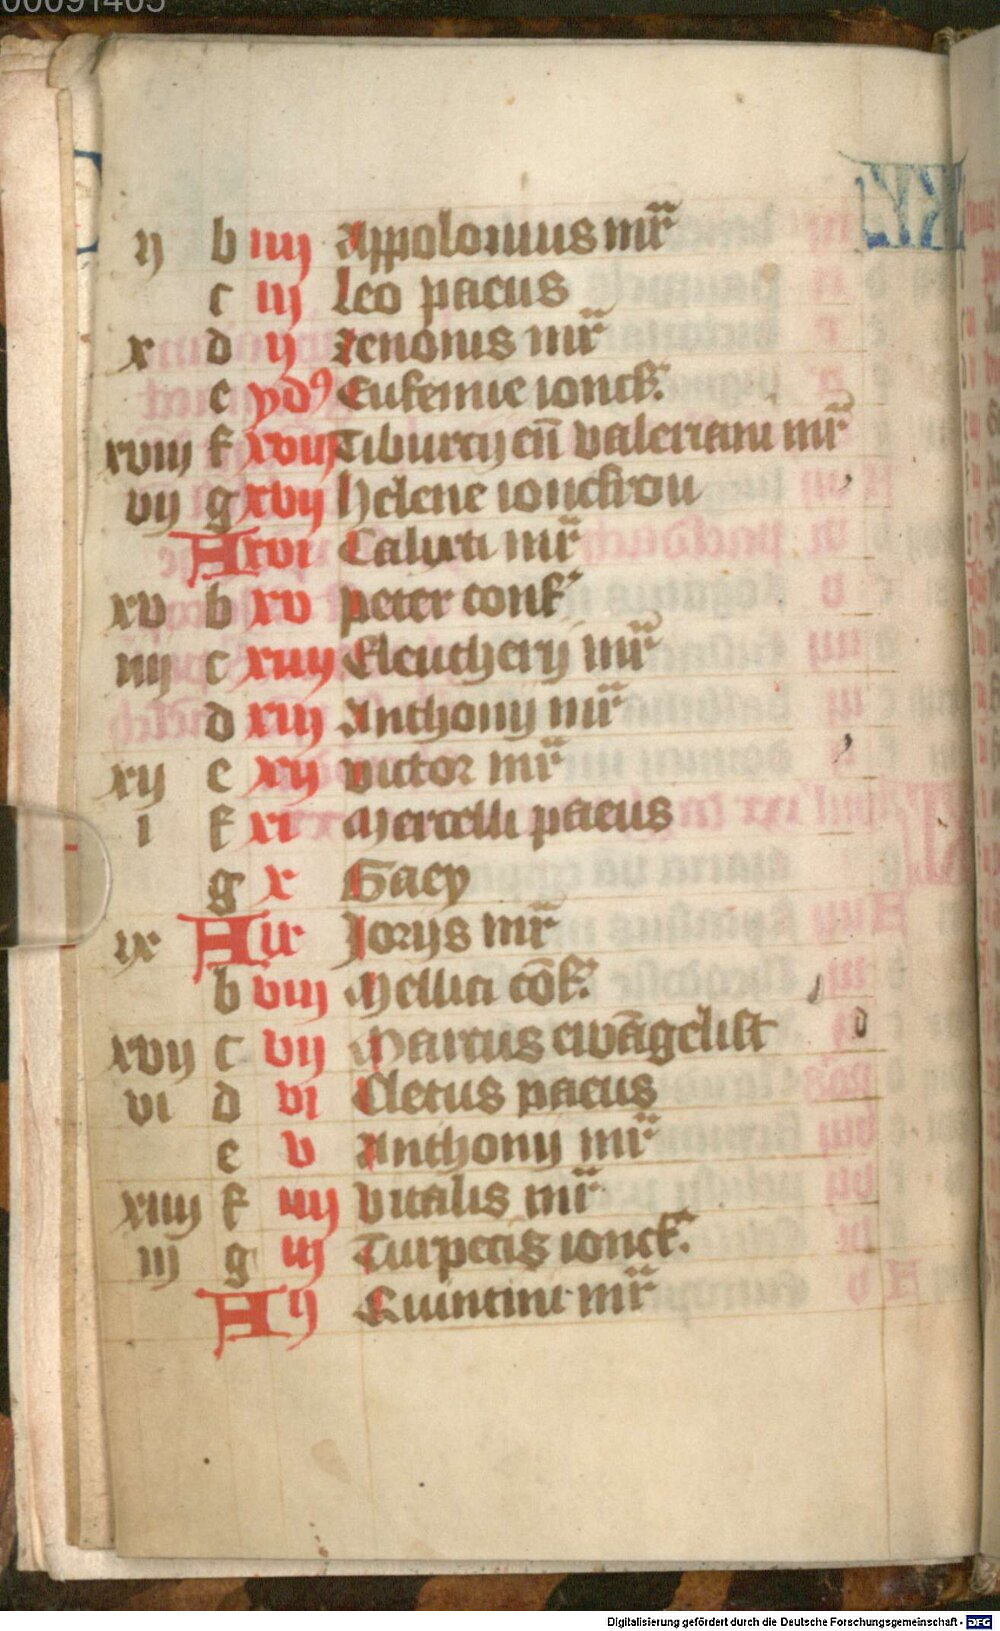 00091405
ij b iiij Appolonius mr̄
c iij Leo paeus
x d ij zenonis mr̄
e yd9 Eufemie ionck.
xviij f xviij Tiburcij en̄ valeriani mr̄
vij g xvij Helene ionckvrou
A xvi Calixti mr̄
xv b xv peter conf
iiij c xiiij Eleutherij mr̄
d xiij Anthonij mr̄
xij e xij victor mr̄
i f xi Mercelli paeus
g x Gaey
ix A ix Jorijs mr̄
b viij Mellita cōf.
xvij c vij Marcus ewāgelist
vi d vi Cletus paeus
e v Anthonij mr̄
xiiij f iiij Vitalis mr̄
iij g iij Turpetis ionck.
A ij Quintini mr̄
Digitalisierung gefördert durch die Deutsche Forschungsgemeinschaft - DFG